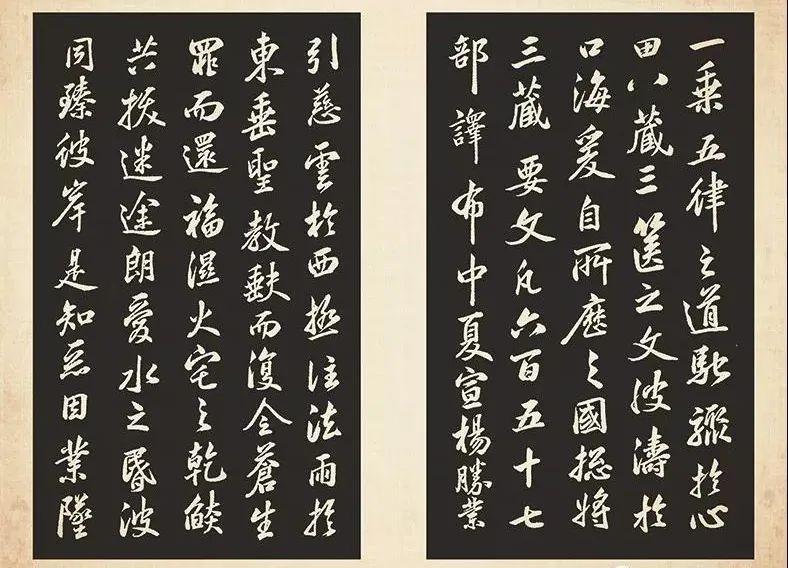 一乘五律之道馳驟於心
田八藏三篋之文波濤於
口海爰自所歷之國揔將
三藏要文凡六百五十七
部譯布中夏宣楊勝業
引慈雲於西極注法雨於
東垂聖教缺而復全蒼生
罪而還福濕火宅之乾焰
共拔迷途朗愛水之昏波
同臻彼岸是知惡因業墜